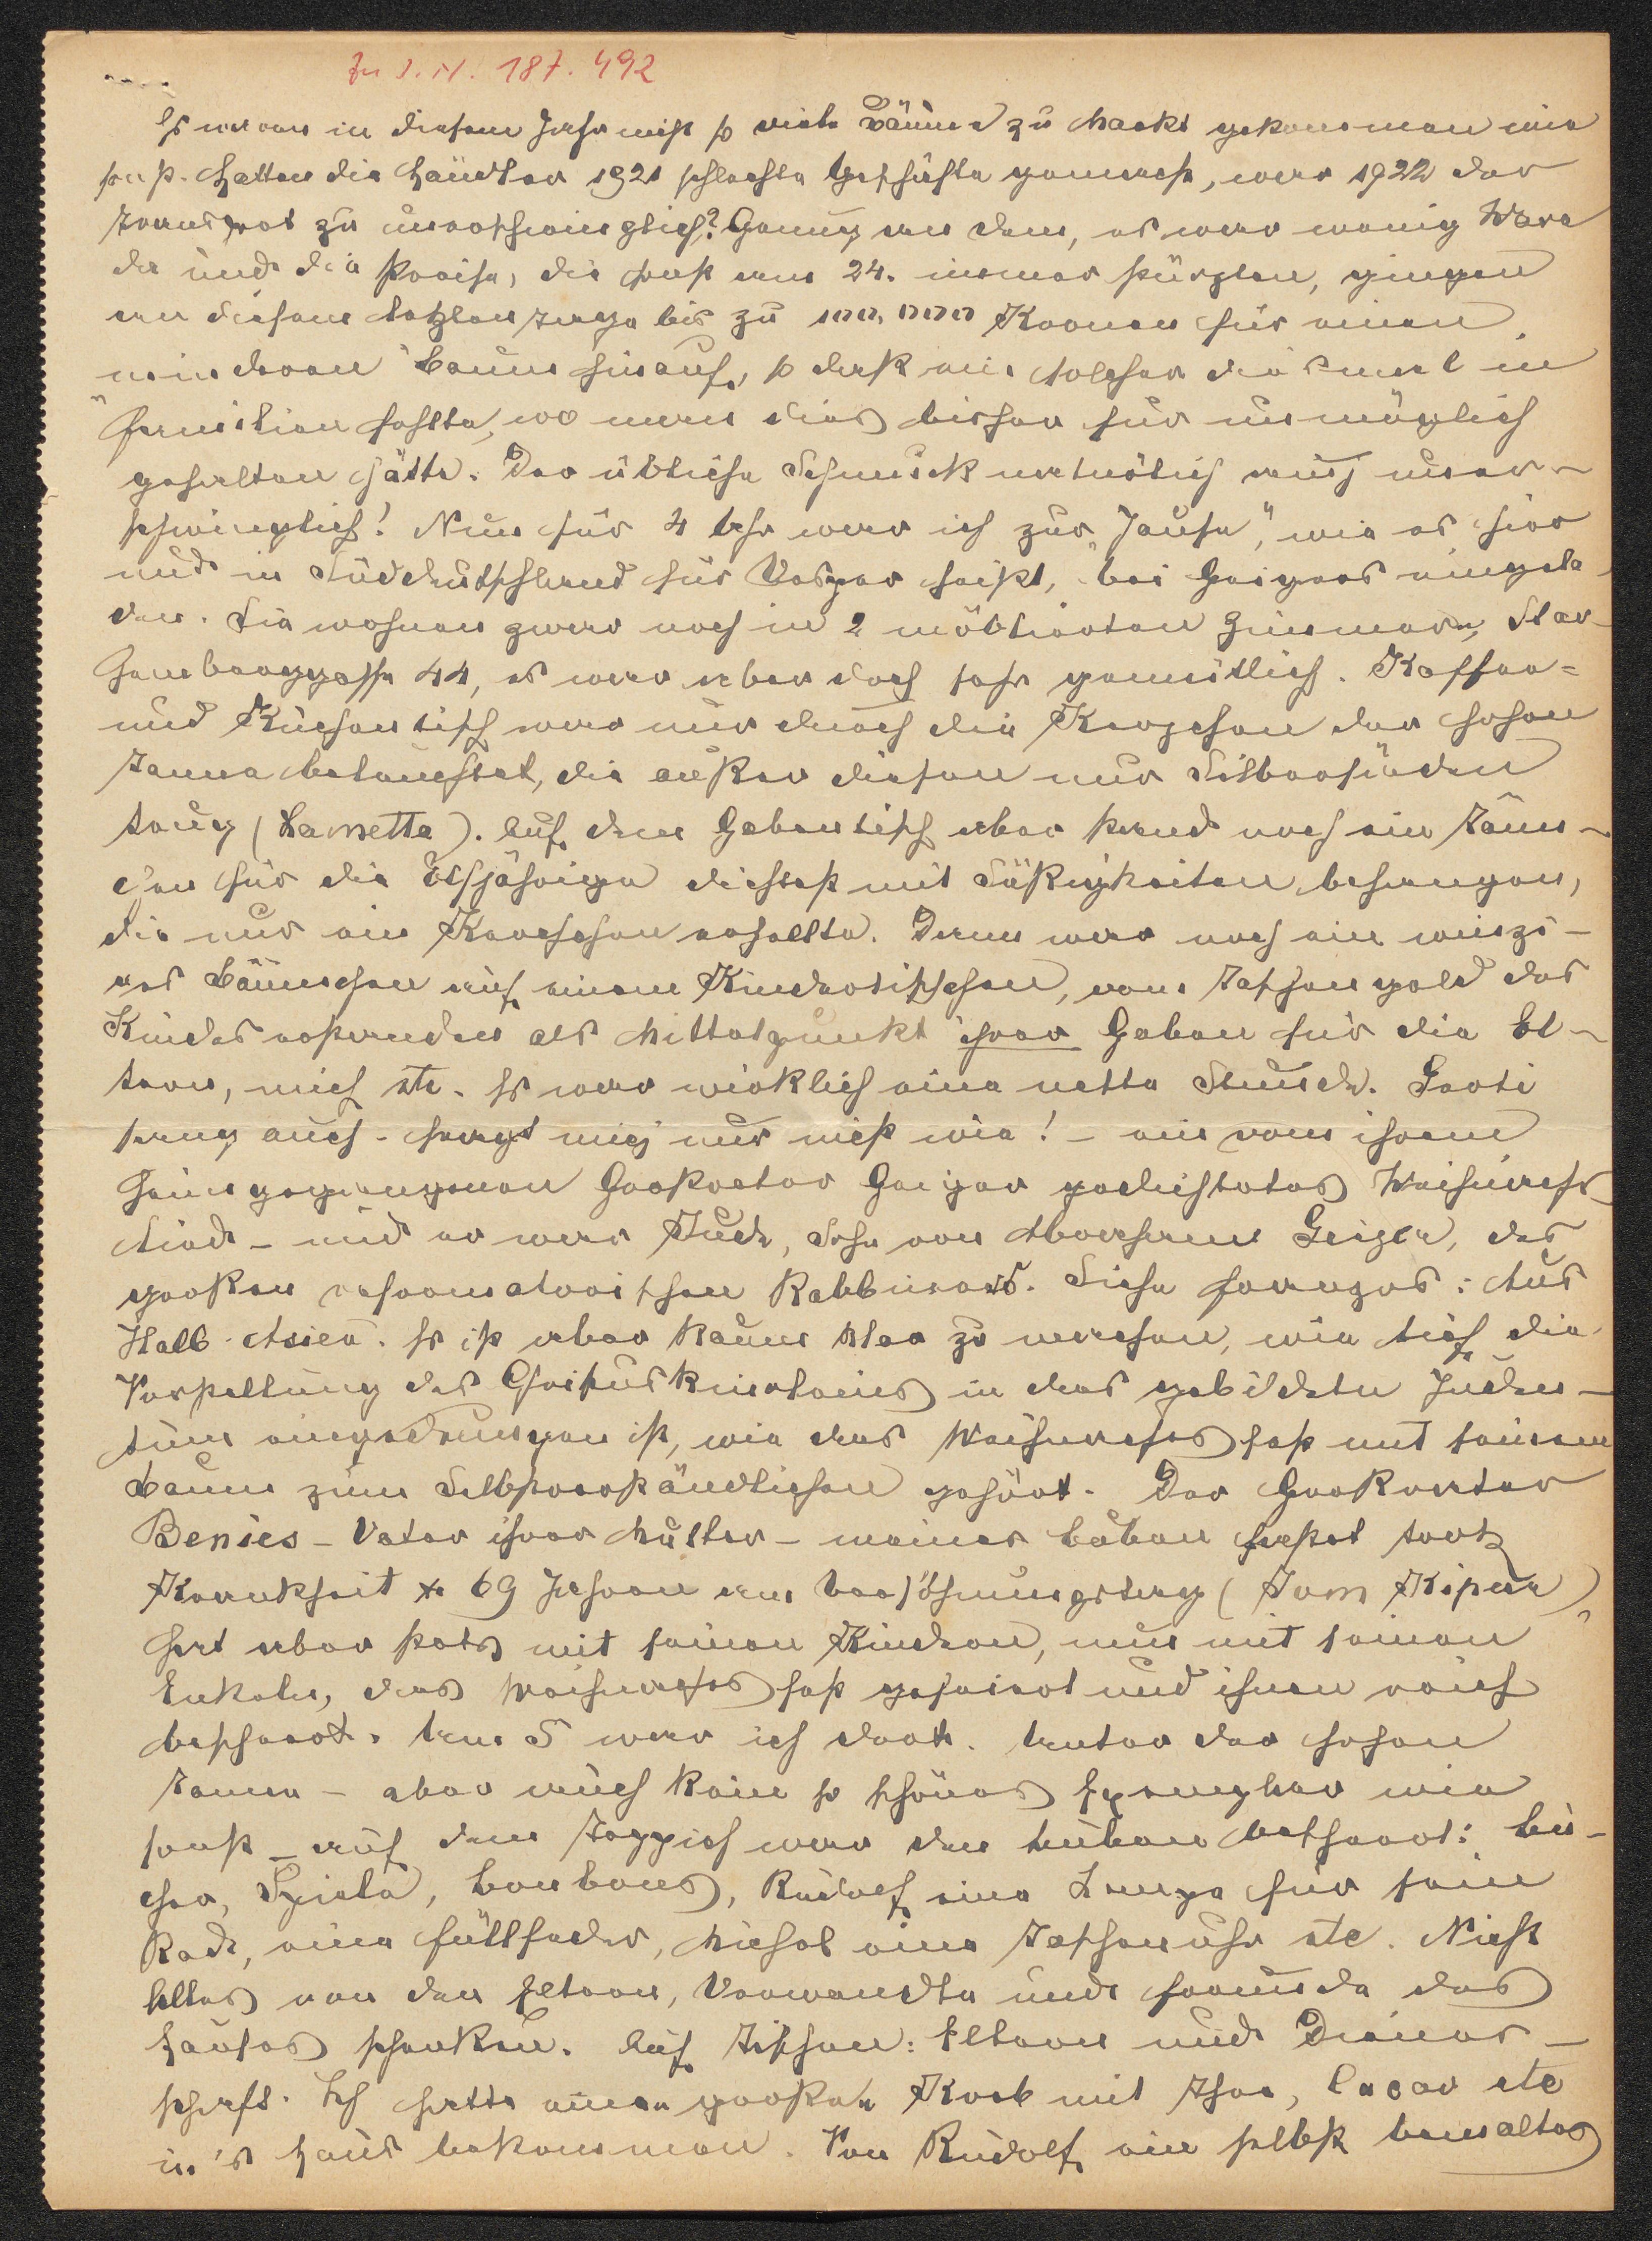 Zu I. N. 187.492
Es waren in diesem Jahr nicht so viele Bäume zu Markt gekommen wie
sonst. Hatten die Händler 1921 schlechte Geschäfte gemacht, war 1922 der
Transport zu unerschwinglich? Genug an dem, es war wenig Ware
da und die Preise, die sonst am 24. immer stürzten, gingen
an diesem letzten Tage bis zu 100,000 Kronen für einen
minderen Baum hinauf, so daß ein solcher diesmal in
Familien fehlte, wo man dies bisher für unmöglich
gehalten hätte. Der übliche Schmuck natürlich auch uner-
schwinglich! Nun für 4 Uhr war ich zur "Jause", wie es hier
und in Süddeutschland für Vesper heißt, bei Geigers eingela-
den. Sie wohnen zwar noch in 2 möblierten Zimmern, Star-
hemberggasse 44, es war aber doch sehr gemütlich. Kaffee-
und Kuchentisch war nur durch die Kerzchen der hohen
Tanne beleuchtet, die außer diesen nur Silberfäden
trug (Lametta). Auf dem Gabentisch aber stand noch ein Tänn-
chen für die Elfjährige dichtest mit Süßigkeiten behangen,
die nur ein Kerzchen erhellte. Dann war noch ein winzi-
ges Bäumchen auf einem Kindertischchen, vom Taschengeld des
Kindes erstanden als Mittelpunkt ihrer Gaben für die El-
tern, mich etc. Es war wirklich eine nette Stunde. Gerti
sang auch - fragt mich nur nicht wie! - ein von ihrem
heimgegangenen Großvater Geiger gedichtetes Weihnachts-
lied - und er war Jude, Sohn von Abraham Geiger, des
großen reformatorischen Rabbiners. Siehe Franzos: Aus
Halb-Asien. Es ist aber kaum klar zu machen, wie tief die
Vorstellung des Christuskindleins in das gebildete Juden-
tum eingedrungen ist, wie das Weihnachtsfest mit seinem
Baum zum Selbstverständlichen gehört. Der Großvater
Benies - Vater ihrer Mutter - meiner Buben fastet trotz
Krankheit & 69 Jahren am Versöhnungstag (Jom Kipur),
hat aber stets mit seinen Kindern, nun mit seinen
Enkeln, das Weihnachtsfest gefeiert und ihnen reich
beschert. Um 5 war ich dort. Unter der hohen
Tanne - aber auch kein so schönes Exemplar wie
sonst - auf dem Teppich war den Buben beschert: Bü-
cher, Spiele, Bonbons, Rudolf eine Lampe für sein
Rad, eine Füllfeder, Michel eine Taschenuhr etc. Nicht
Alles von den Eltern, Verwandte und Freunde des
Hauses schenken. Auf Tischen: Eltern und Diener-
schaft. Ich hatte einen großen Korb mit Thee, Cacao etc
in's Haus bekommen. Von Rudolf ein selbst bemaltes